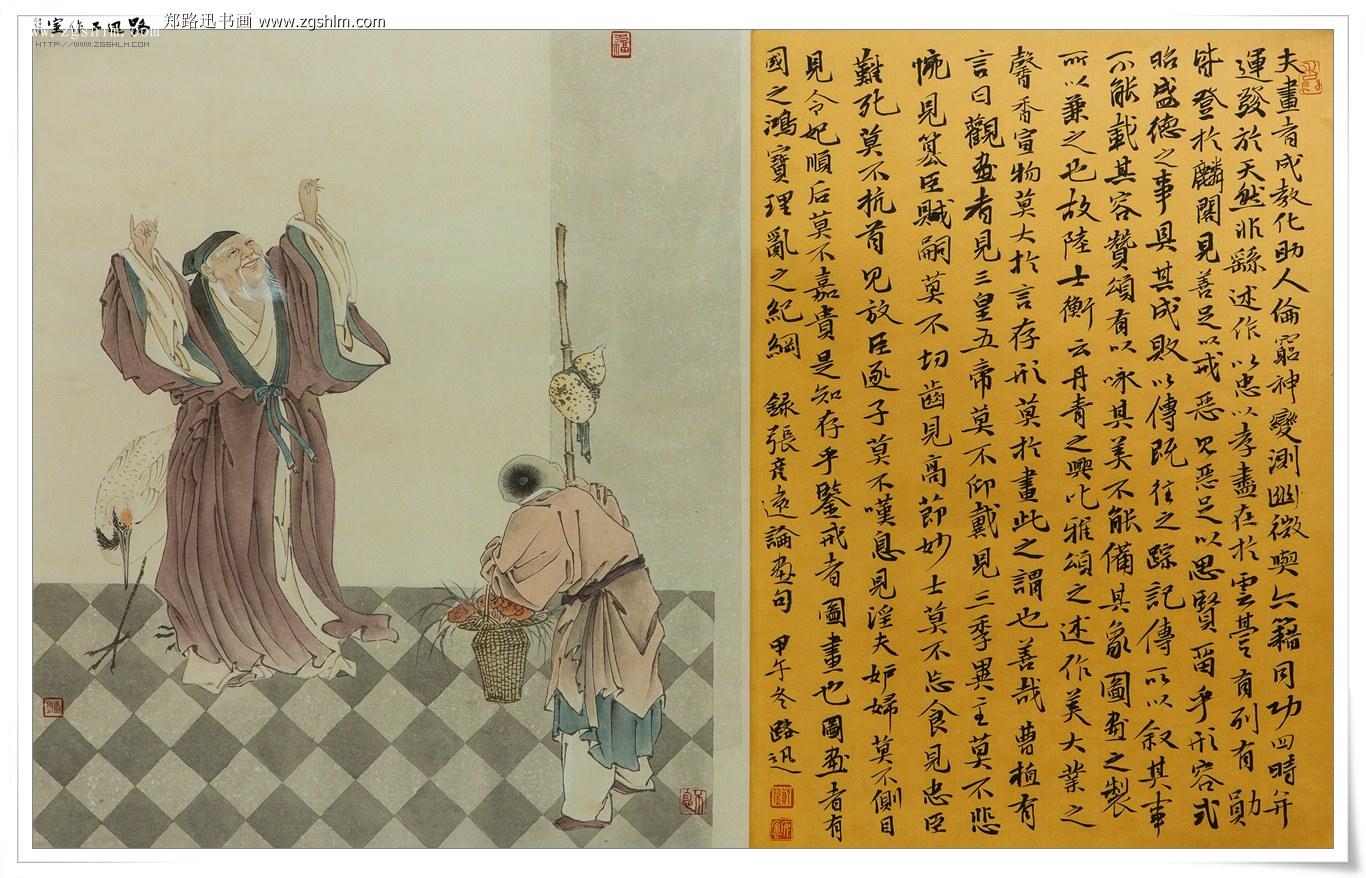 郑路迅书画 www.zgshlm.com
www.zgshlm.com
HTTP://WWW.ZGSHLM.COM
夫畫者成教化助人倫窮神變測幽微與六籍同功四時并
運發於天然非繇述作以忠以孝盡在於雲臺有列有勛
皆登於麟閣見善足以戒惡見惡足以思賢留乎形容式
昭盛德之事具其成敗以傳既往之踪記傳所以叙其事
不能載其容贊頌有以咏其美不能備其象圖畫之製
所以兼之也故陸士衡云丹青之興比雅頌之述作美大業之
馨香宣物莫大於言存形莫於畫此之謂也善哉曹植有
言曰觀畫者見三皇五帝莫不仰戴見三季異主莫不悲
惋見篡臣賊嗣莫不切齒見高節妙士莫不忘食見忠臣
難死莫不抗首見放臣逐子莫不嘆息見淫夫妒婦莫不側目
見令妃順后莫不嘉貴是知存乎鑒戒者圖畫也圖畫者有
國之鴻寶理亂之紀綱 録張彦遠論畫句 甲午冬路迅